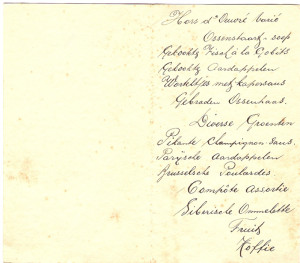 Hors d'Oeuvre Varié
Ossenstaart-soep
Gekookte Visch à la Gobits
Gekookte Aardappelen
Worteltjes met kapersaus
Gebraden Ossenhaas.
Diverse Groenten
Pikante Champignon saus
Parijsche Aardappelen
Brusselsche Poulardes
Compôte Assortie
Siberische Ommelette
Fruit
Koffie